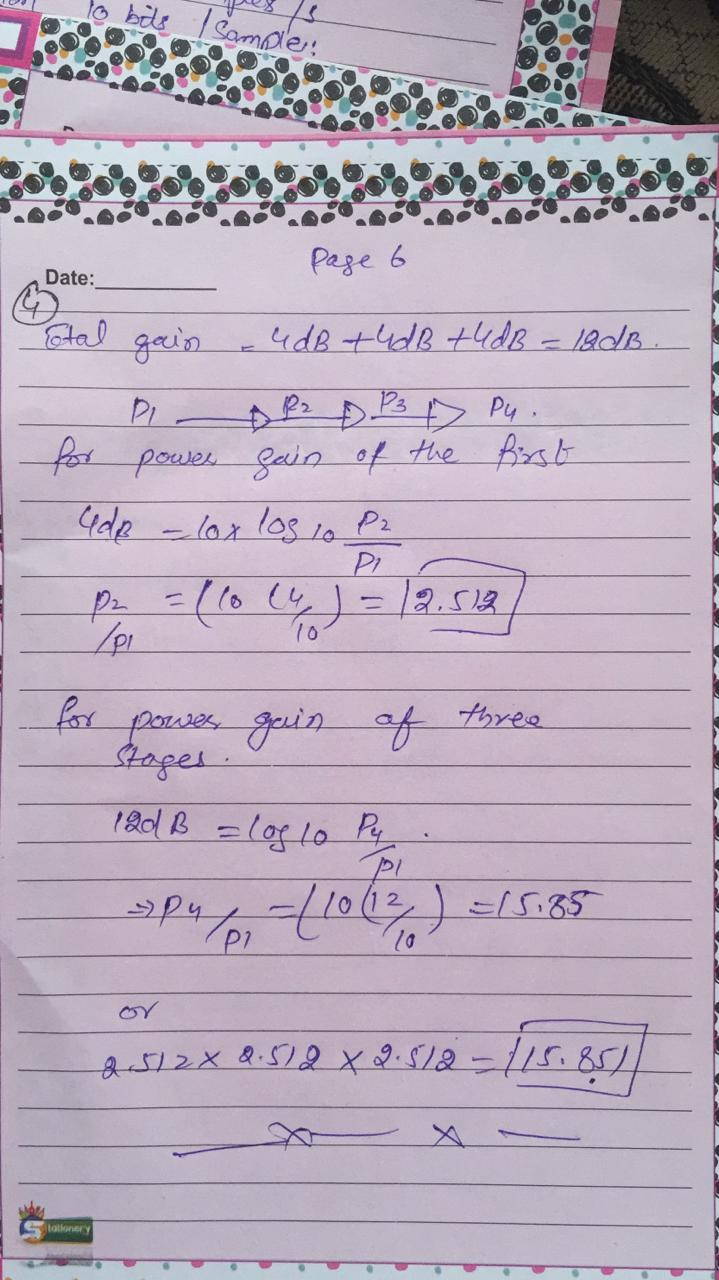 10 bits / Sample.
Page 6
Date:
4
Total gain = 4dB + 4dB + 4dB = 12dB.
P1 P2 P3 P4.
for power gain of the first
4dB = 10 x log 10 P2
P1
P2 = (10 (4/10) = 2.512
/P1
for power gain of three
stages.
12dB = log 10 P4/P1.
⇒ P4/P1 = (10 (12/10) = 15.85
or
2.512 x 2.512 x 2.512 = 15.851
Stationery